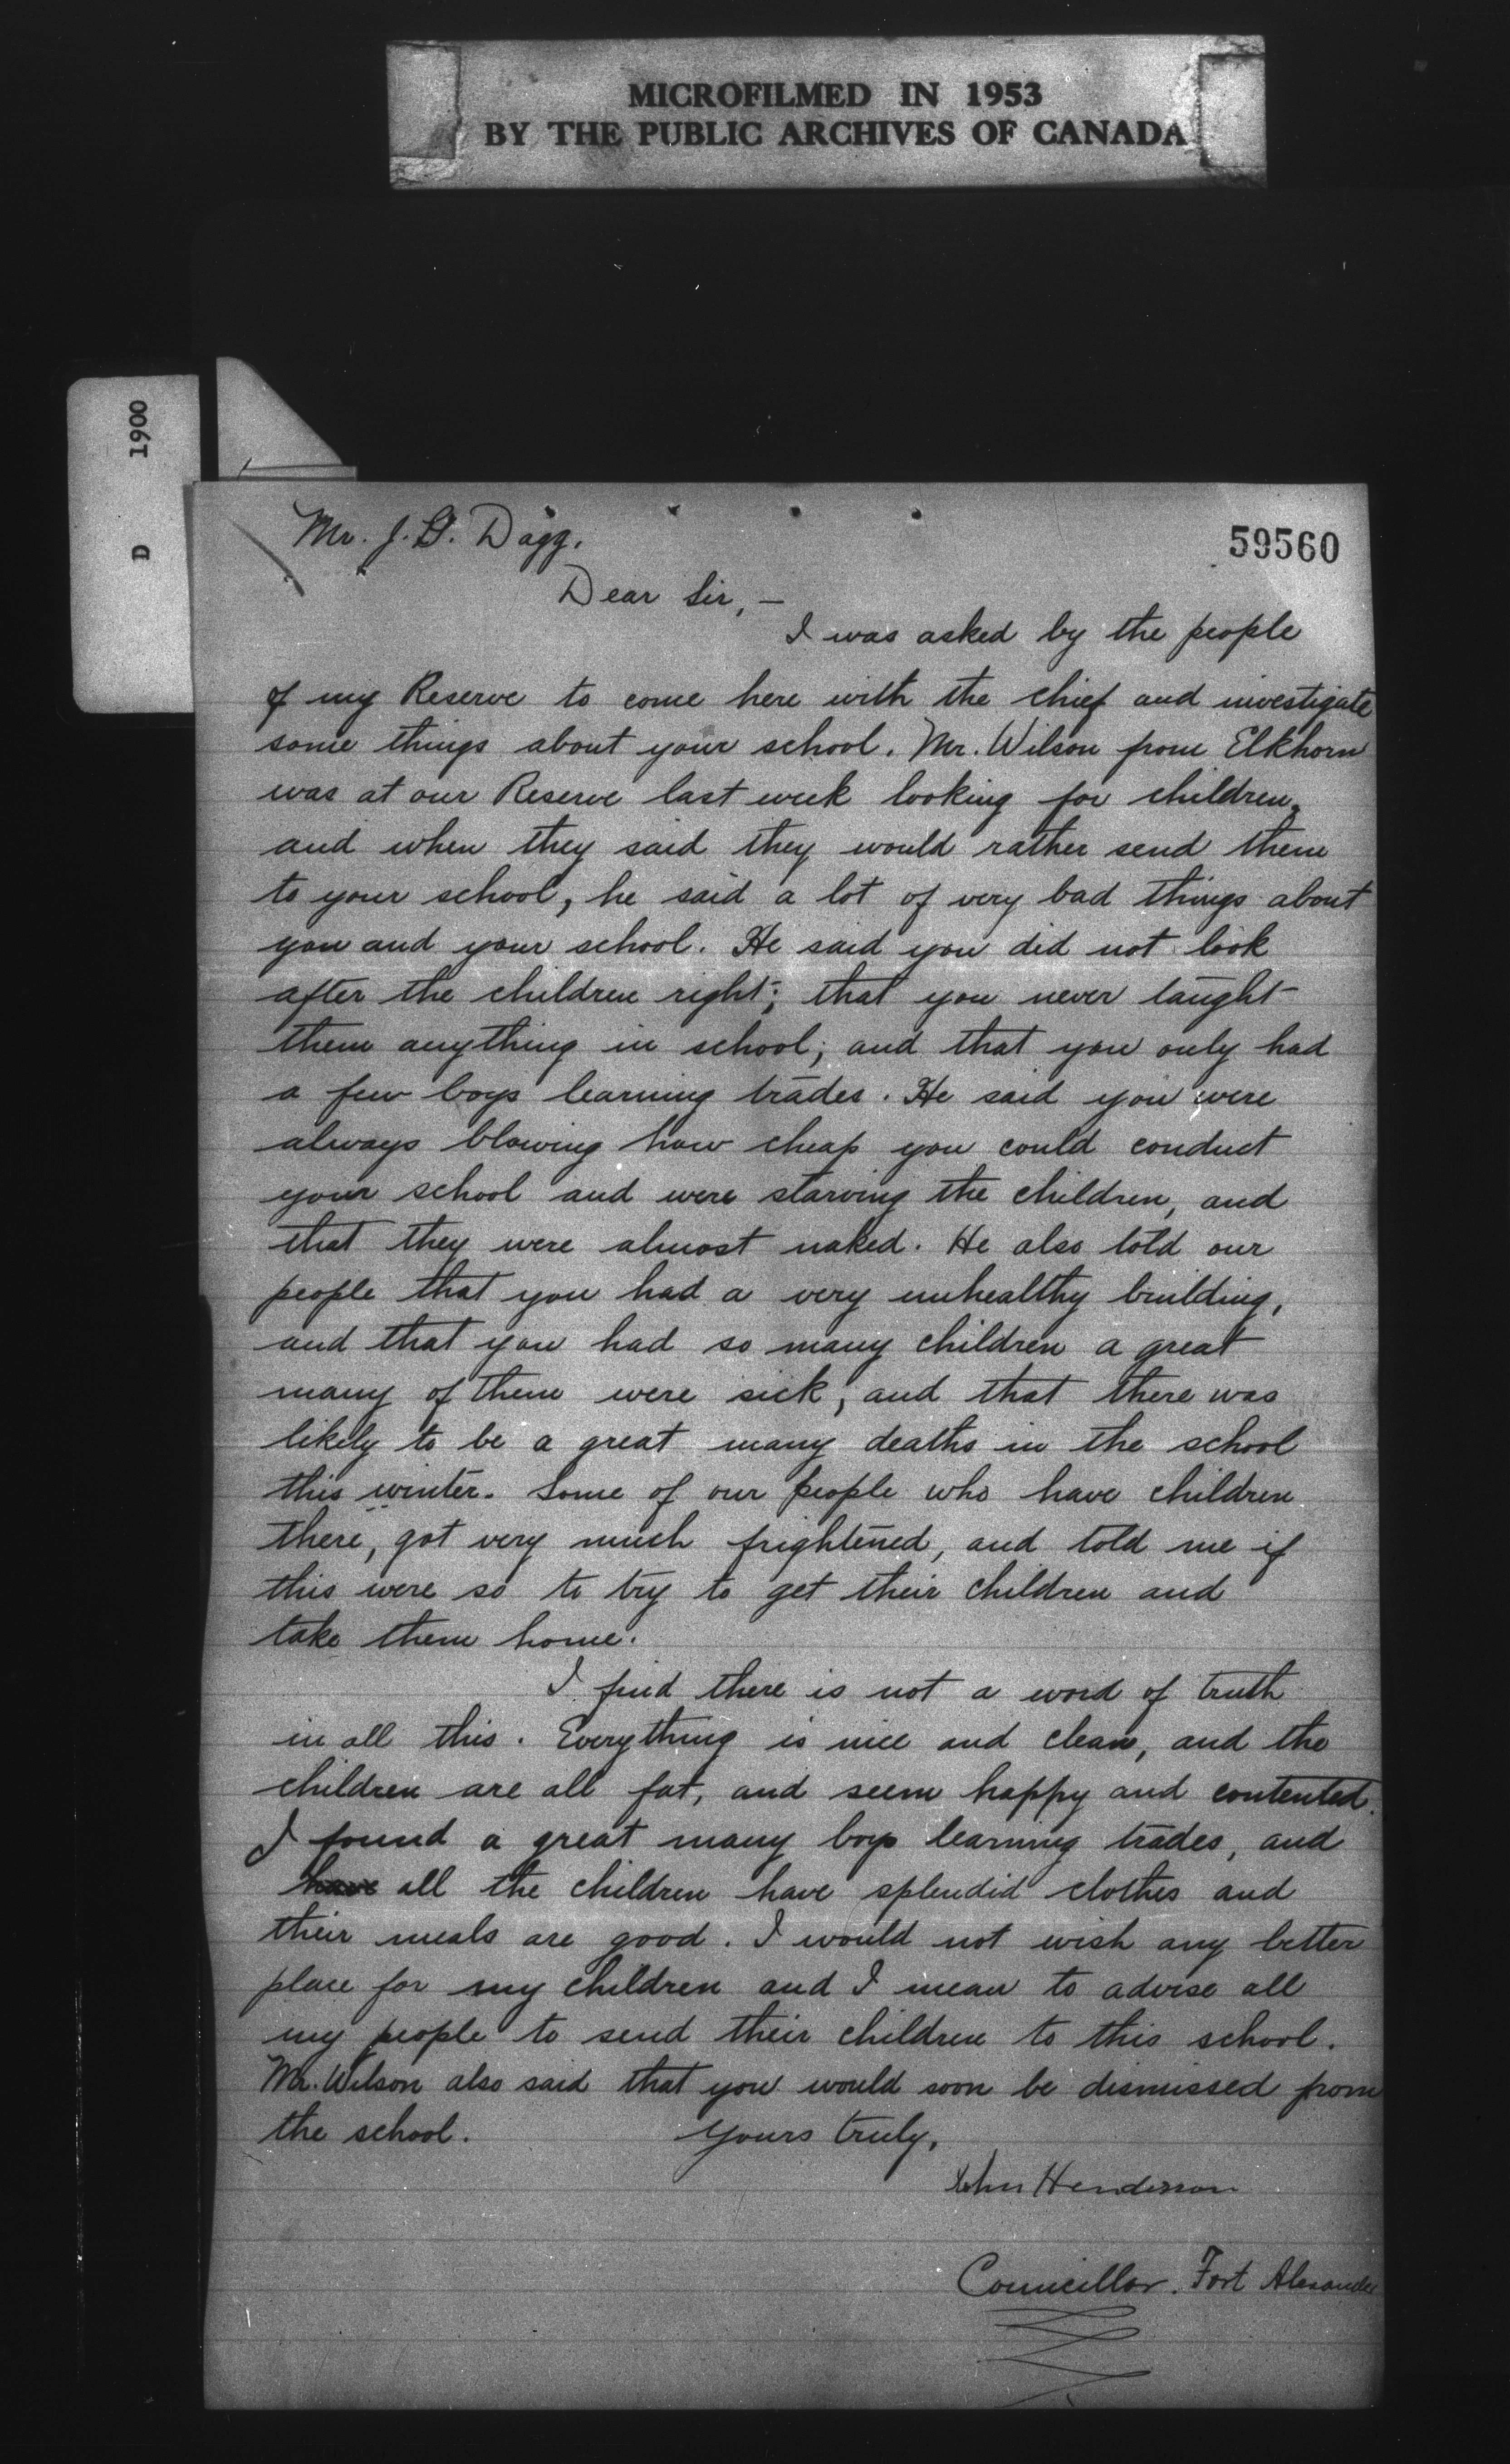 MICROFILMED IN 1953
BY THE PUBLIC ARCHIVES OF CANADA
1900
D
59560
Mr. J. G. Dagg,
Dear Sir, —
I was asked by the people
of my Reserve to come here with the chief and investigate
some things about your school. Mr. Wilson from Elkhorn
was at our Reserve last week looking for children,
and when they said they would rather send them
to your school, he said a lot of very bad things about
you and your school. He said you did not look
after the children right; that you never taught
them anything in school; and that you only had
a few boys learning trades. He said you were
always blowing how cheap you could conduct
your school and were starving the children, and
that they were almost naked. He also told our
people that you had a very unhealthy building,
and that you had so many children a great
many of them were sick, and that there was
likely to be a great many deaths in the school
this winter. Some of our people who have children
there, got very much frightened, and told me if
this were so to try to get their children and
take them home.
I find there is not a word of truth
in all this. Everything is nice and clean, and the
children are all fat, and seem happy and contented.
I found a great many boys learning trades, and
have all the children have splendid clothes and
their meals are good. I would not wish any better
place for my children and I mean to advise all
my people to send their children to this school.
Mr. Wilson also said that you would soon be dismissed from
the school. Yours truly,
John Henderson
Councillor. Fort Alexander